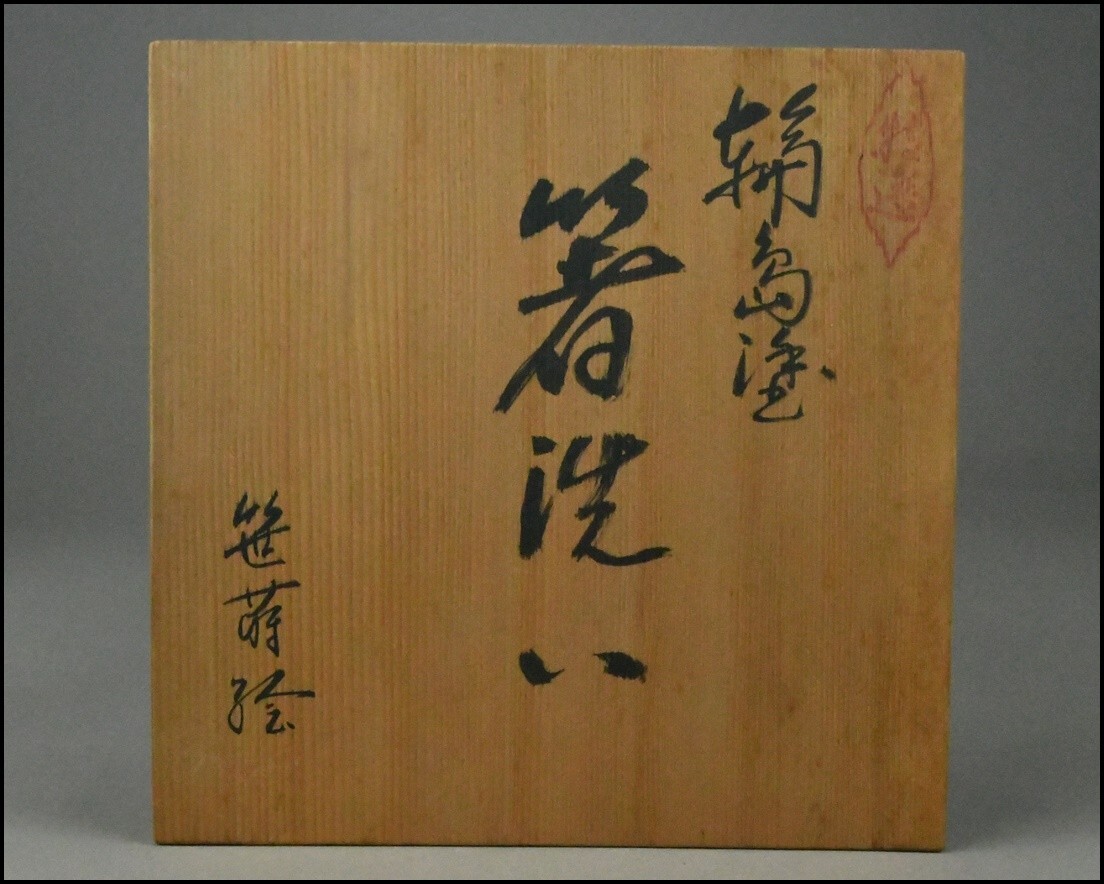 輪島塗
箸洗い
笹蒔絵